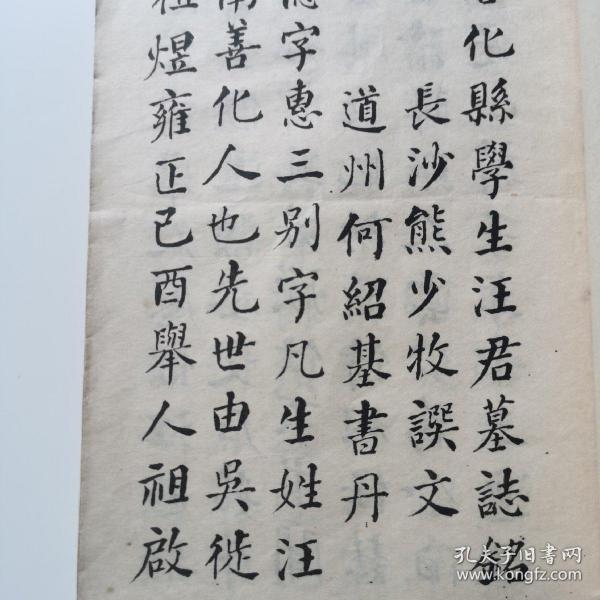 化縣學生汪君墓誌銘
長沙熊少牧譔文
道州何紹基書丹
字惠三别字凡生姓汪
善化人也先世由吳徙
煜雍正己酉舉人祖啟
孔夫子旧书网
www.kongfz.com